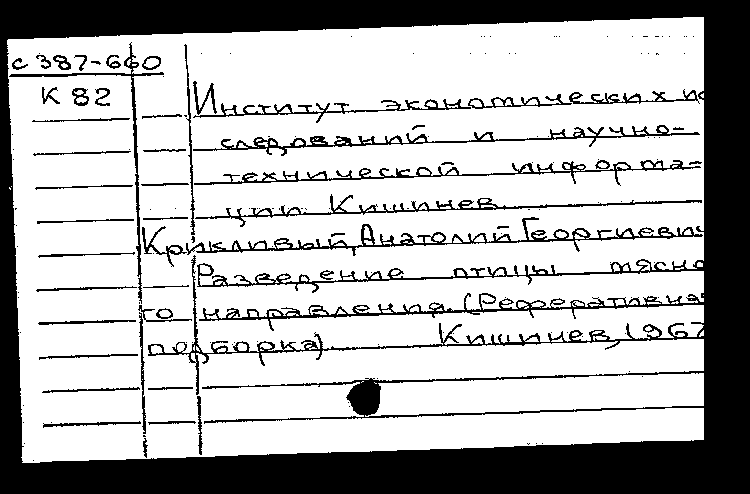 с 387-660
К 82
Институт экономических ис
следований и научно-
технической информа-
ции. Кишинев.
Крикливый, Анатолий Георгиевич
Разведение птицы мясно
го направления. (Реферативная
подборка) Кишинев, 1967